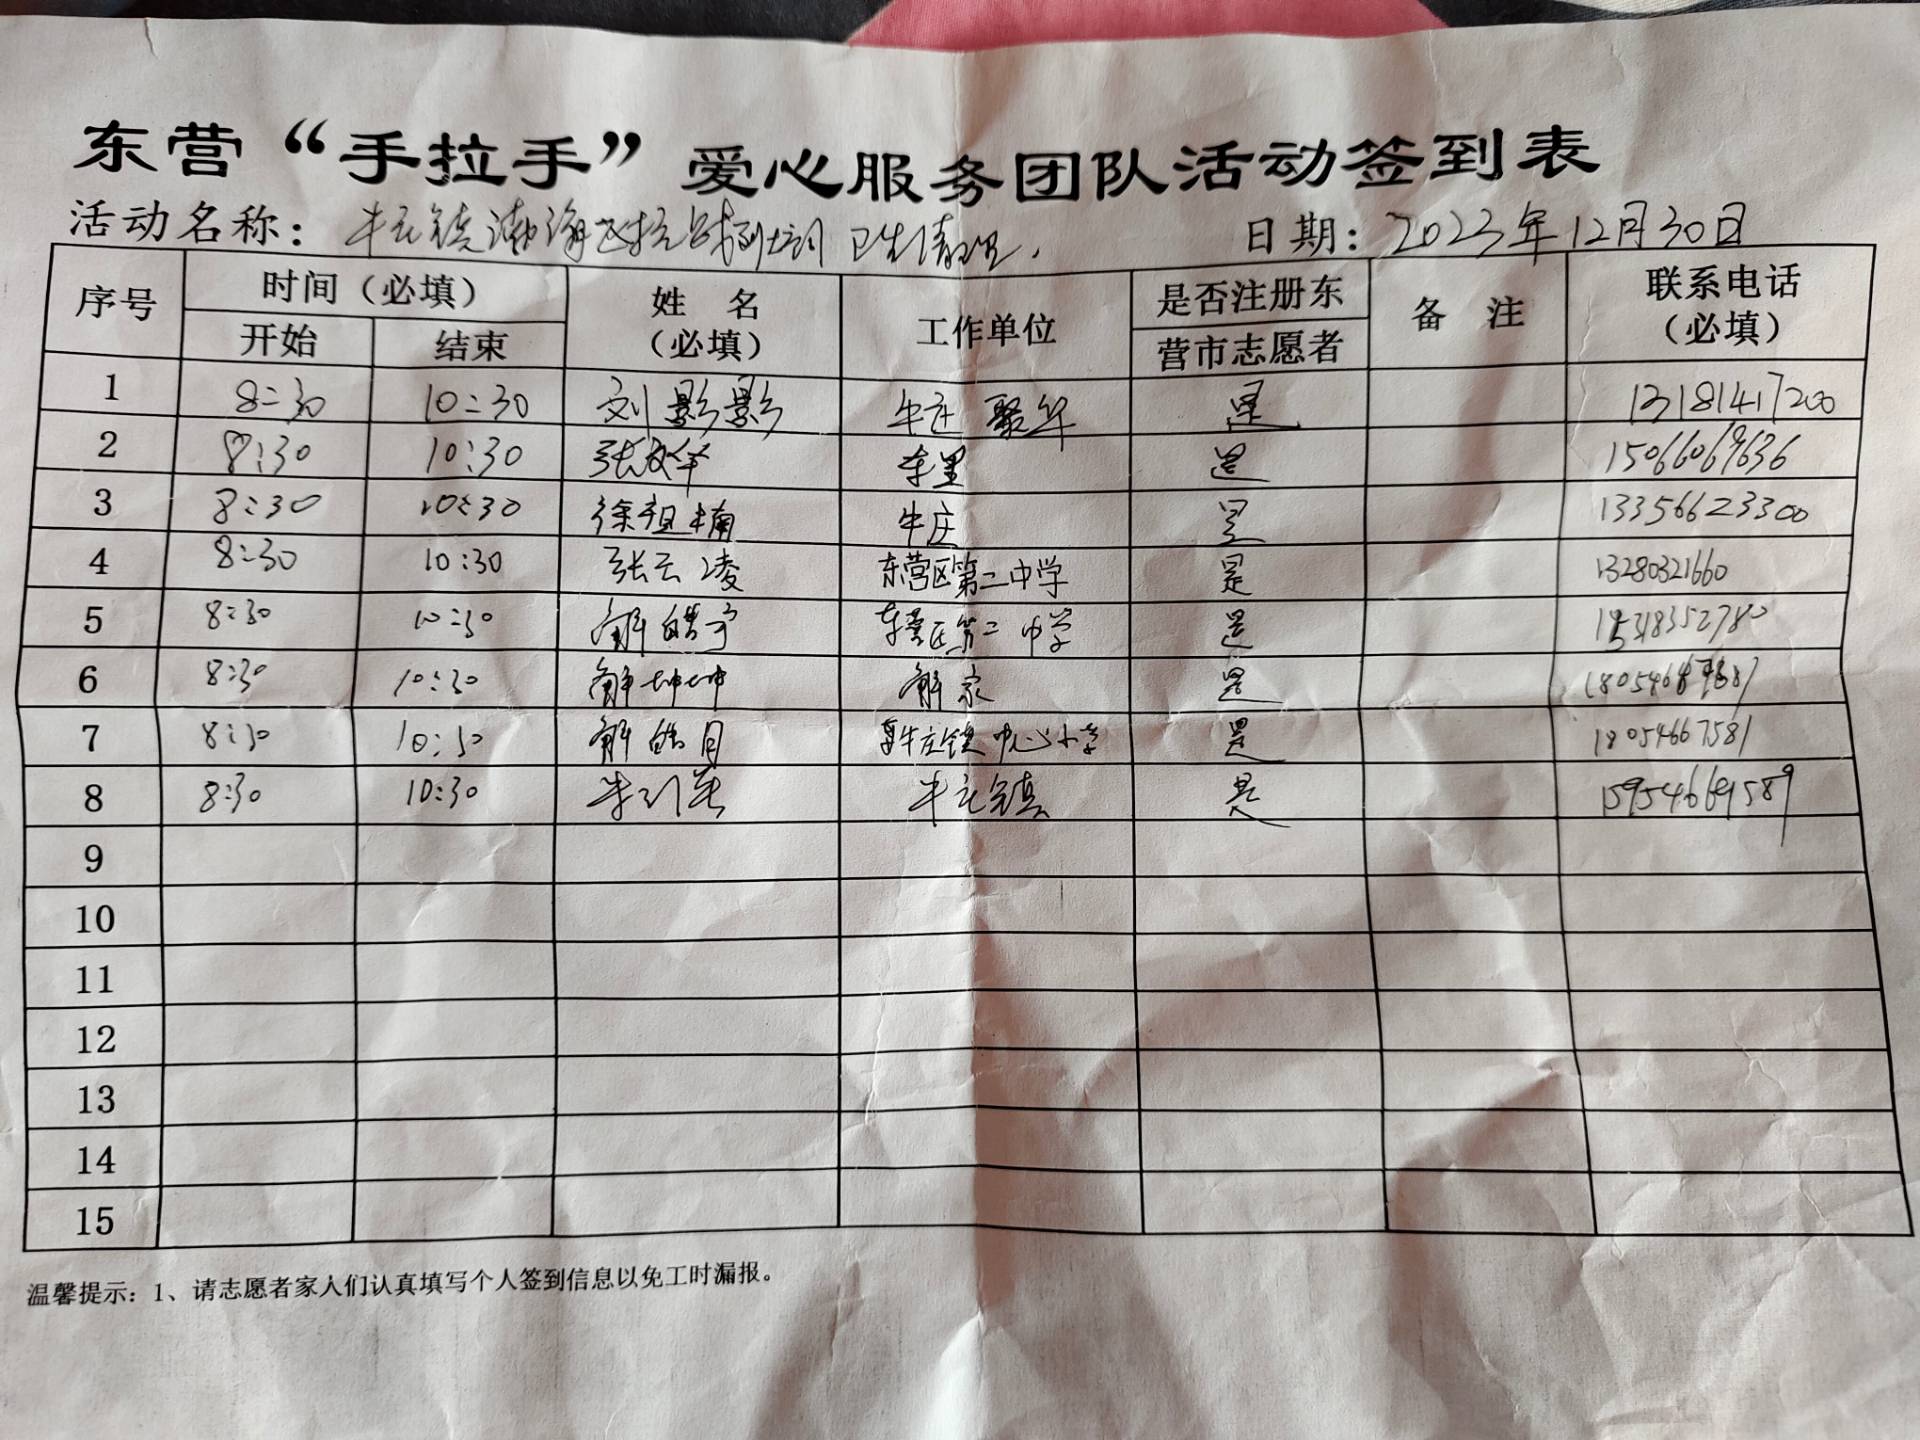 东营“手拉手”爱心服务团队活动签到表
活动名称： 牛庄镇渤海 卫生清理. 日期： 2023年12月30日
序号 时间（必填） 姓 名（必填） 工作单位 是否注册东营市志愿者 备 注 联系电话（必填）
开始 结束
1 8:30 10:30 刘影影 牛庄 是 13181417200
2 8:30 10:30 张 是 15066069636
3 8:30 10:30 徐祖楠 牛庄 是 13356623300
4 8:30 10:30 张云凌 东营区第二中学 是 13280321660
5 8:30 10:30 解皓宁 东营区第二中学 是
6 8:30 10:30 解坤坤 解家 是
7 8:30 10:30 解皓月 牛庄镇中心小学 是 18054667581
8 8:30 10:30 牛庄镇 是 15954669589
9
10
11
12
13
14
15
温馨提示：1、请志愿者家人们认真填写个人签到信息以免工时漏报。